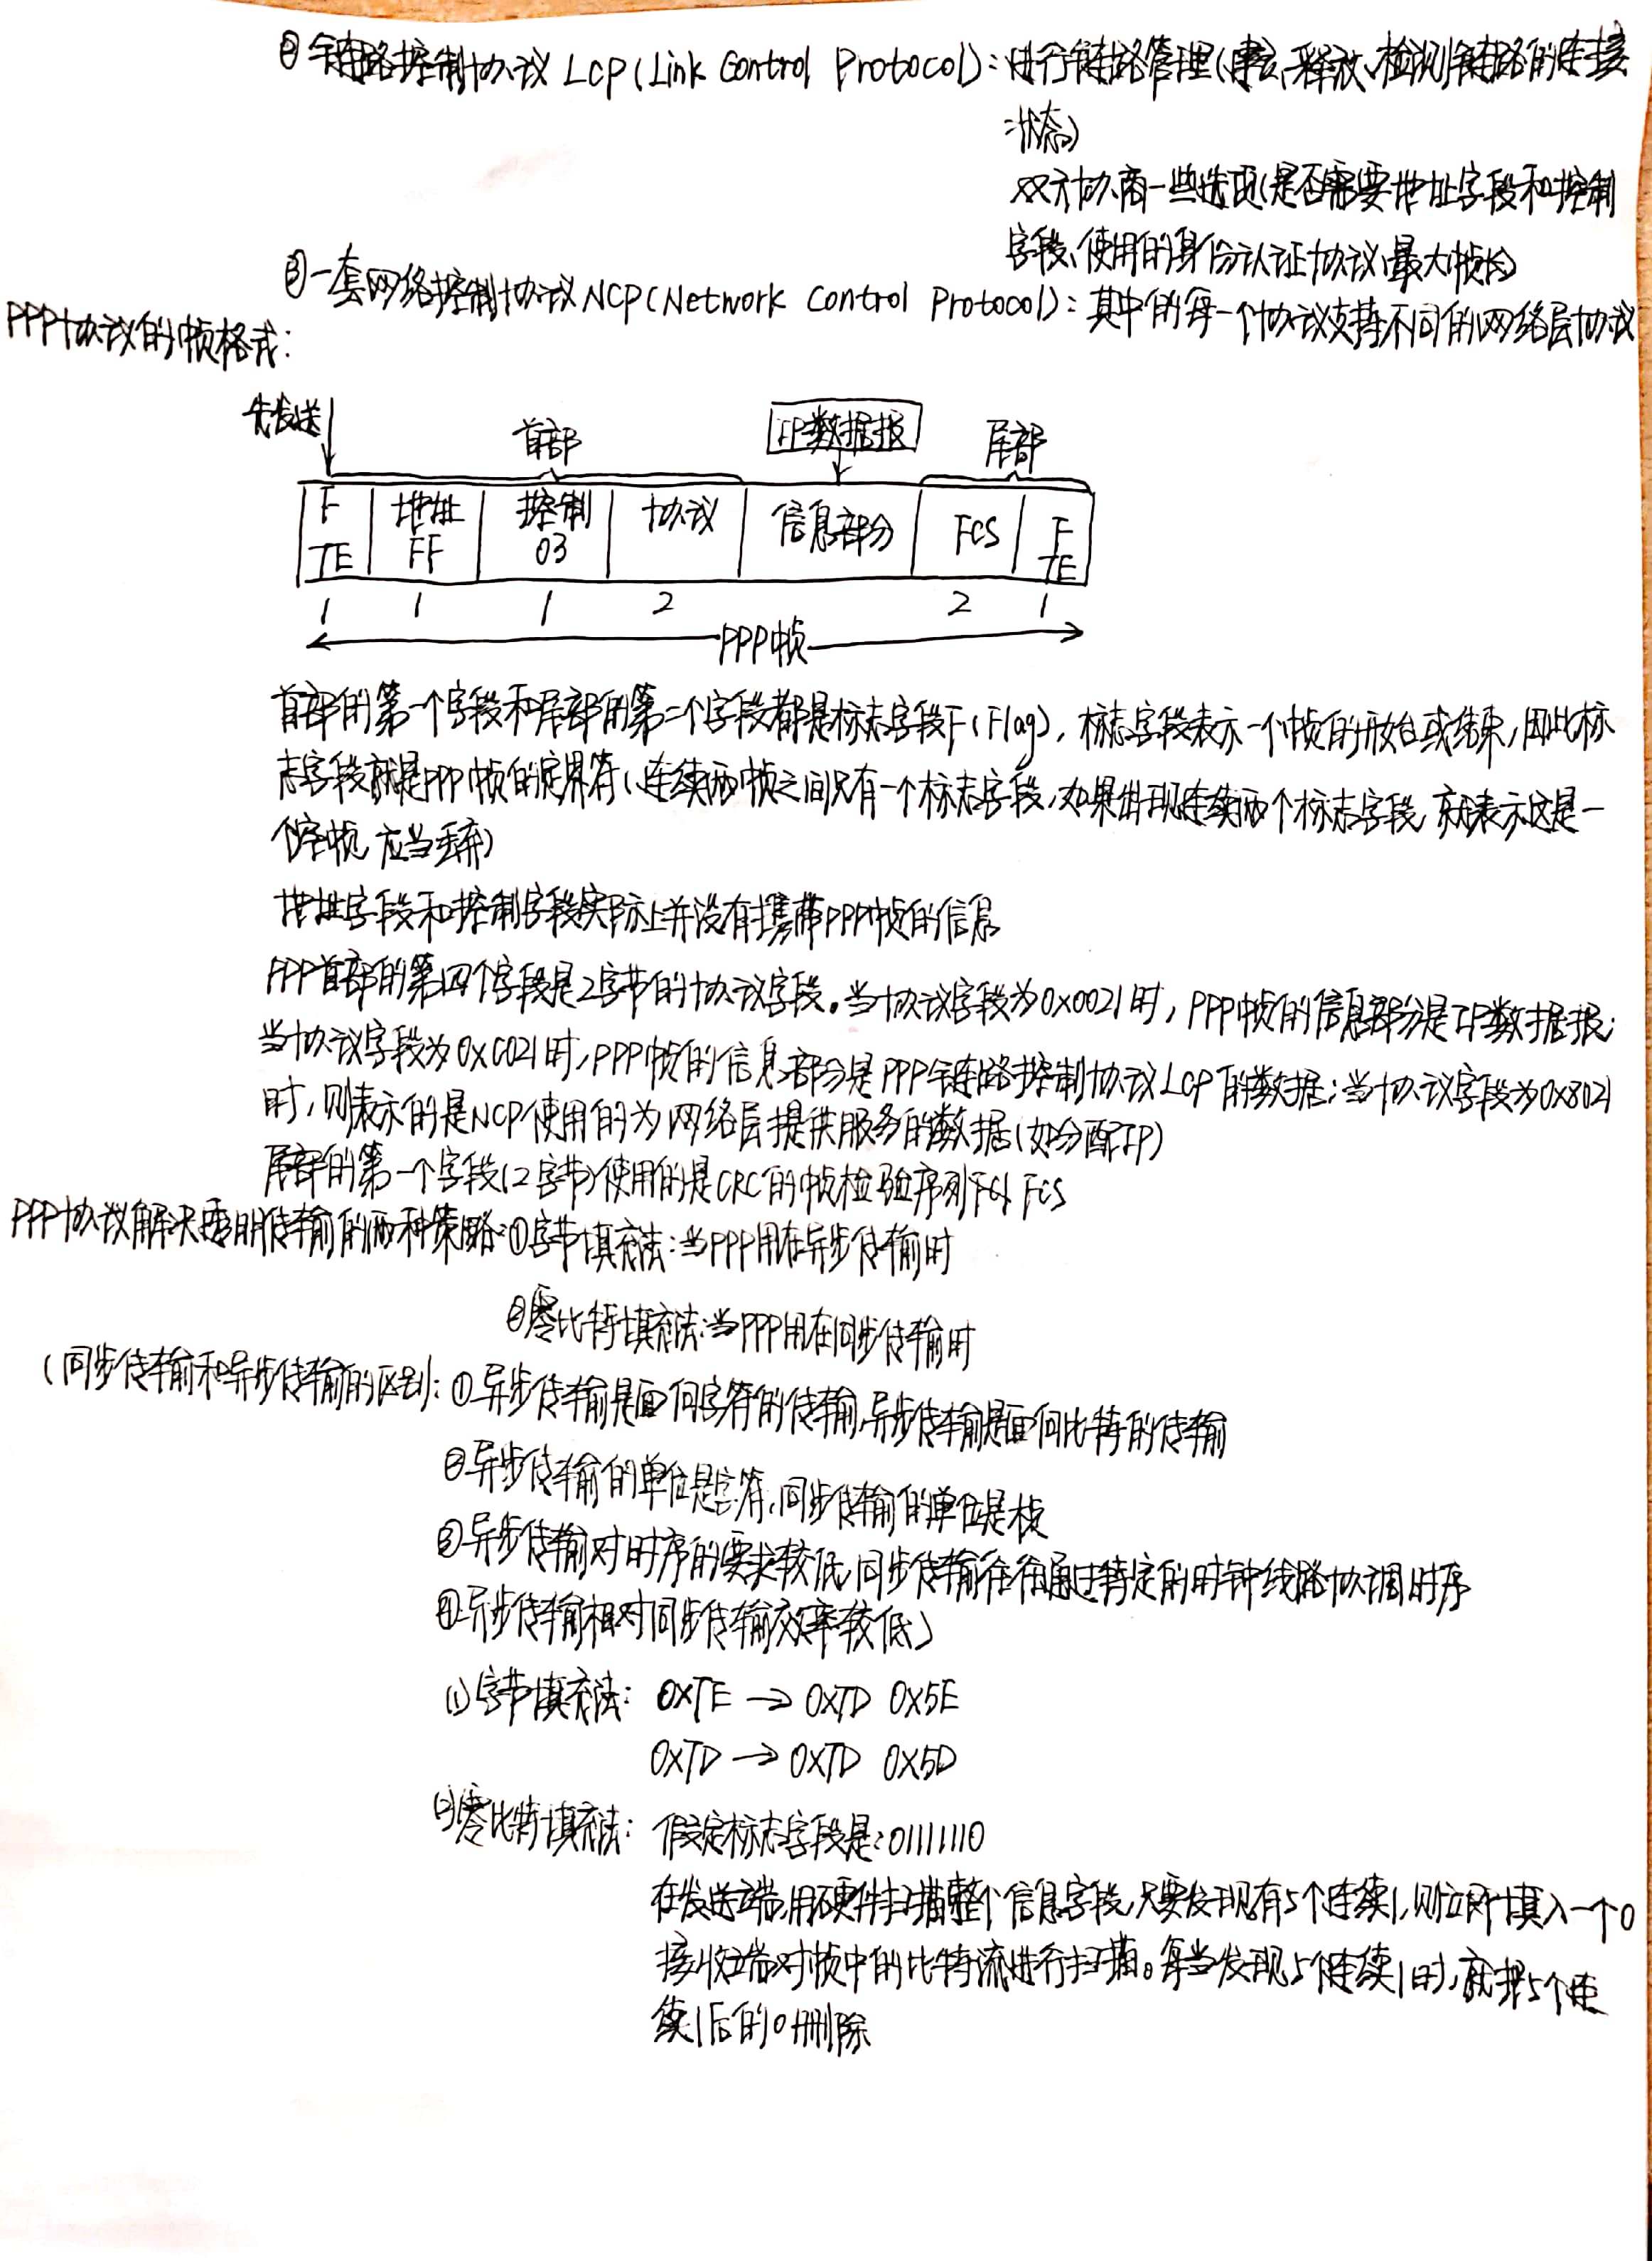 ②链路控制协议LCP(Link Control Protocol):进行链路管理(建立、释放、检测链路的连接
状态)
双方协商一些选项(是否需要地址字段和控制
字段、使用的身份认证协议、最大帧长)
③一套网络控制协议NCP(Network Control Protocol):其中的每一个协议支持不同的网络层协议
PPP协议的帧格式:
先发送
首部 IP数据报 尾部
F 地址 控制 协议 信息部分 FCS F
7E FF 03 7E
1 1 1 2 2 1
PPP帧
首部的第一个字段和尾部的第二个字段都是标志字段F(Flag),标志字段表示一个帧的开始或结束,因此标
志字段就是PPP帧的定界符(连续两帧之间只有一个标志字段,如果出现连续两个标志字段,就表示这是一
个空帧,应当丢弃)
地址字段和控制字段实际上并没有携带PPP帧的信息
PPP首部的第四个字段是2字节的协议字段。当协议字段为0x0021时,PPP帧的信息部分是IP数据报;
当协议字段为0xC021时,PPP帧的信息部分是PPP链路控制协议LCP的数据;当协议字段为0x8021
时,则表示的是NCP使用的为网络层提供服务的数据(如分配IP)
尾部的第一个字段(2字节)使用的是CRC的帧检验序列 FCS
PPP协议解决透明传输的两种策略:①字节填充法:当PPP用在异步传输时
②零比特填充法:当PPP用在同步传输时
(同步传输和异步传输的区别:①异步传输是面向字符的传输,异步传输是面向比特的传输
②异步传输的单位是字符,同步传输的单位是帧
③异步传输对时序的要求较低,同步传输往往通过特定的时钟线路协调时序
④异步传输相对同步传输效率较低)
(1)字节填充法: 0x7E → 0x7D 0x5E
0x7D → 0x7D 0x5D
(2)零比特填充法: 假定标志字段是:01111110
在发送端,用硬件扫描整个信息字段,只要发现有5个连续1,则立即填入一个0
接收端对帧中的比特流进行扫描。每当发现5个连续1时,就把5个连
续1后的0删除